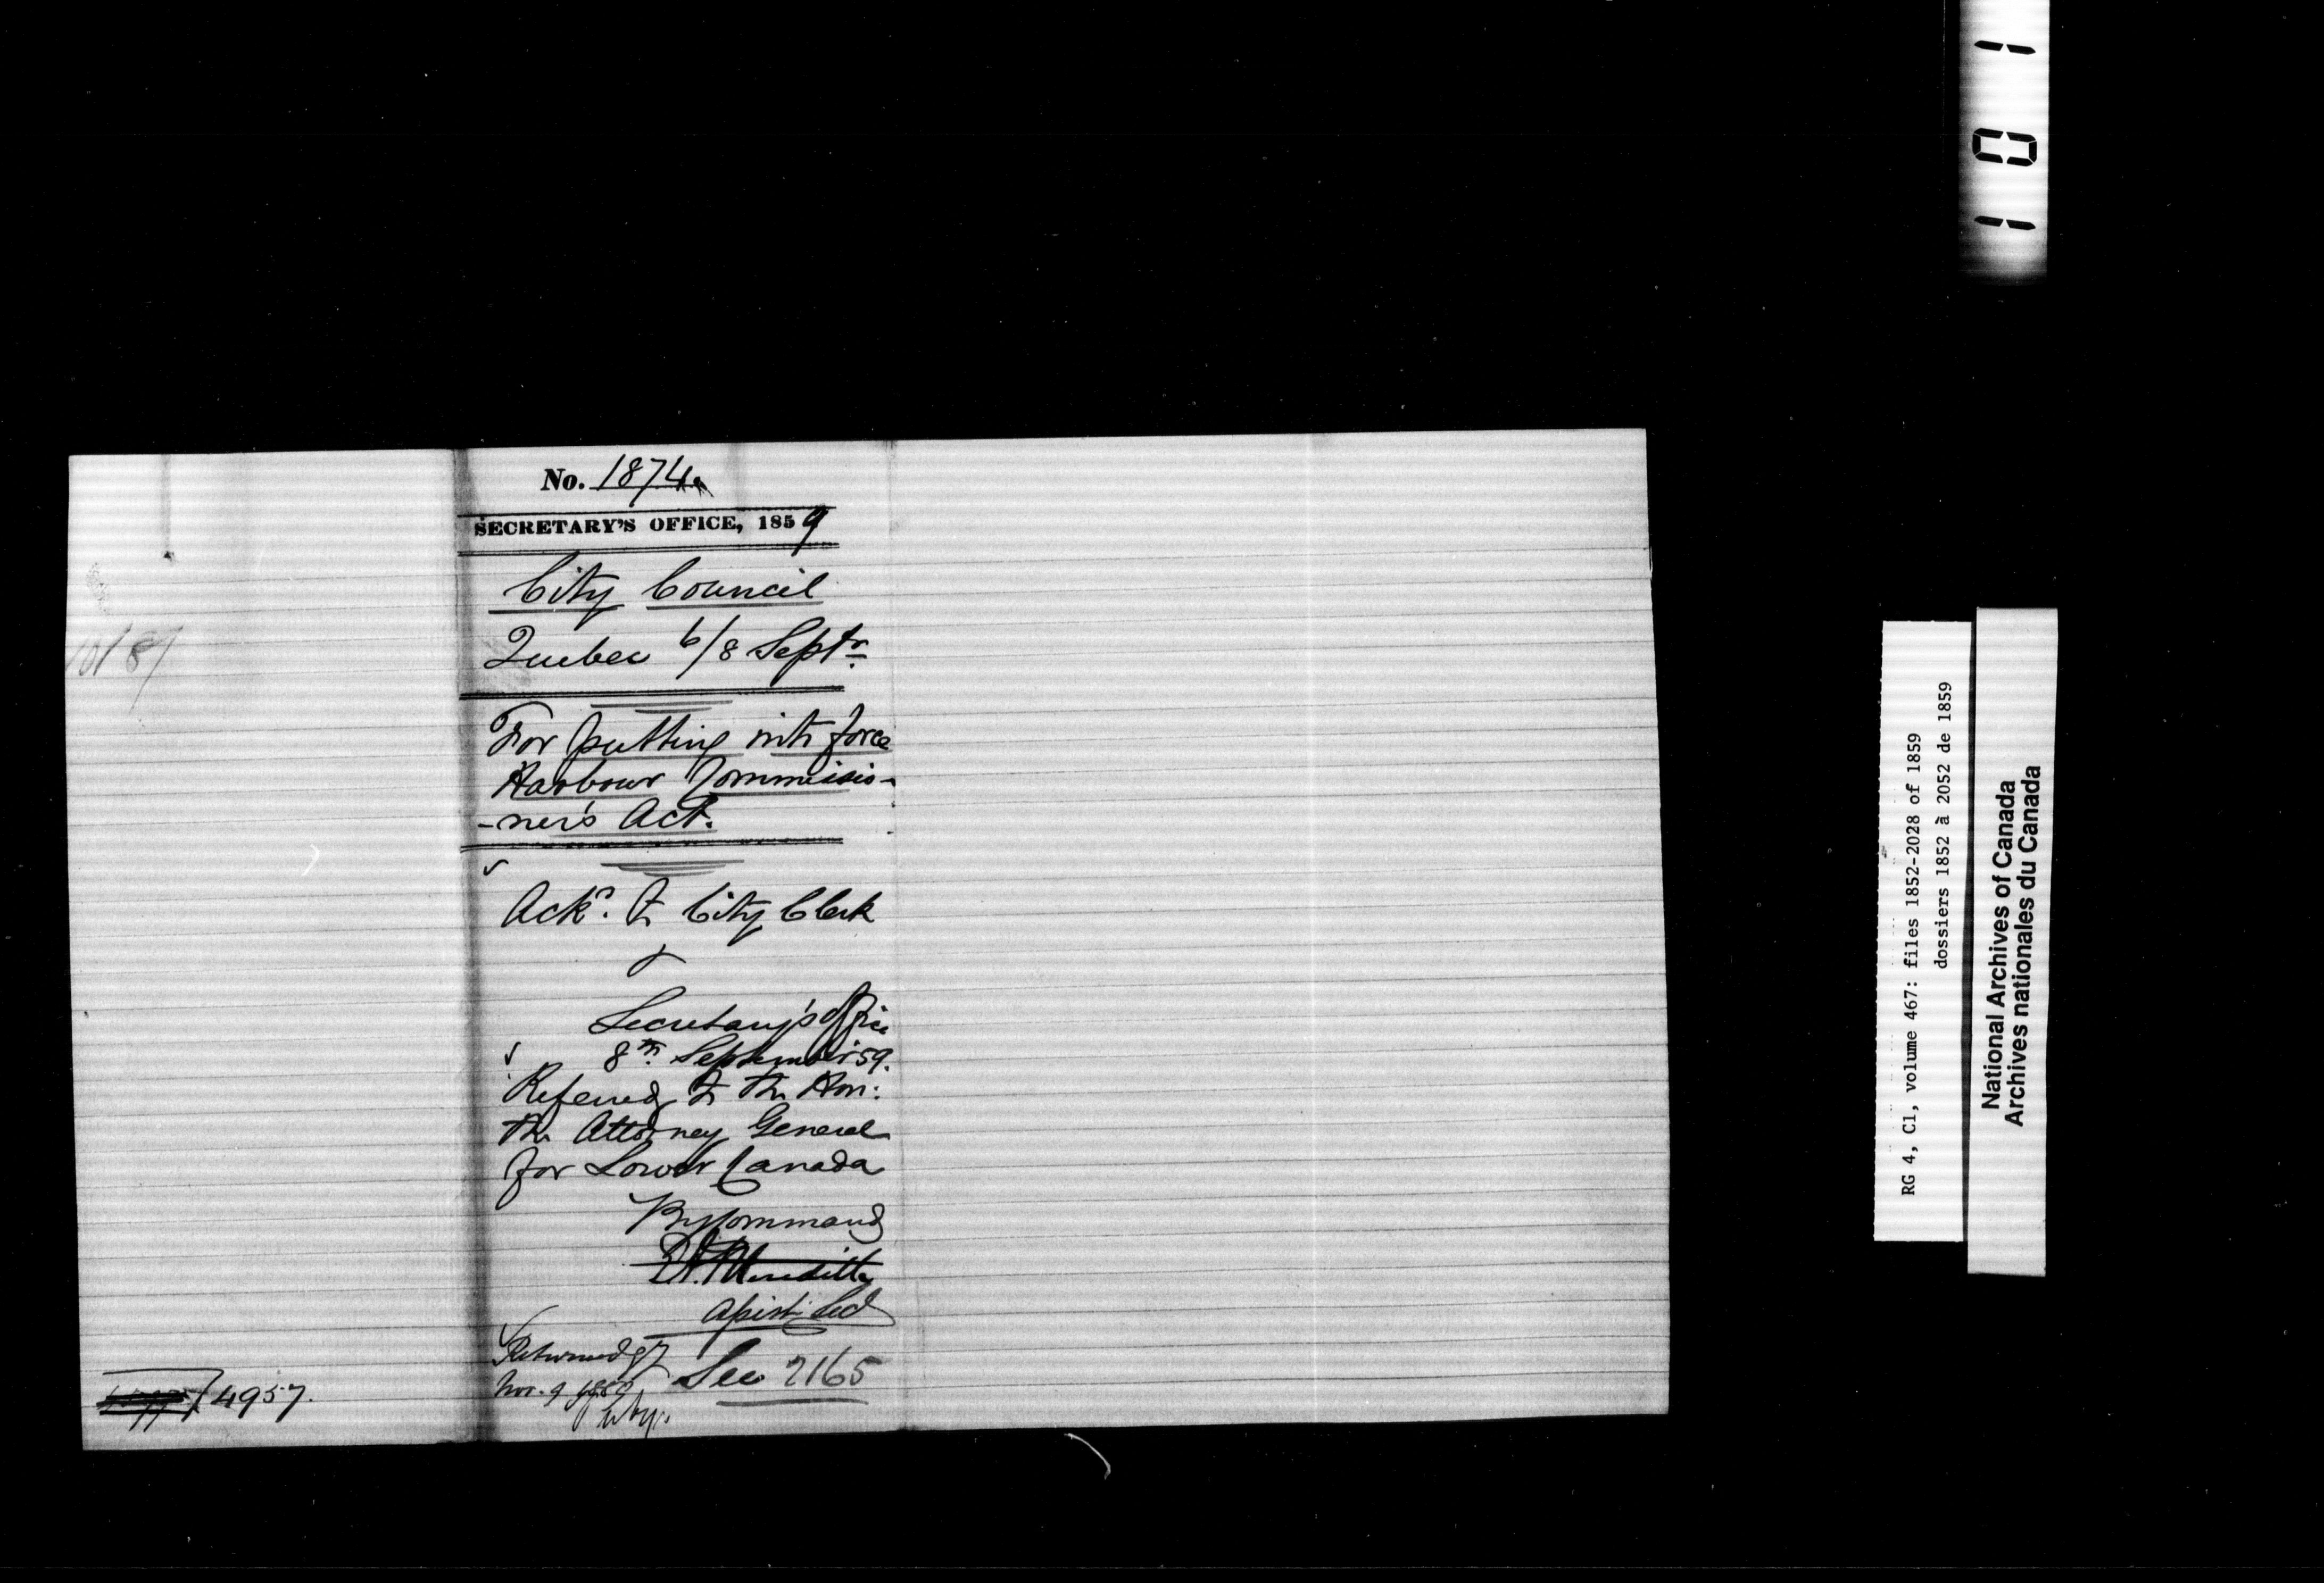 No. 1874.
SECRETARY'S OFFICE, 1859
City Council
Quebec 6/8 Septr.
For putting into force
Harbour Commissio-
-ner's Act.
Ackd. to City Clerk
Secretary's Office
8th. September 59.
Referred to the Hon:
the Attorney General
for Lower Canada
By Command
E.A. Meredith
Assist. Sec
Returned
Nov. 9 1859
See 2165
4957.
101
RG 4, C1, volume 467: files 1852-2028 of 1859
dossiers 1852 à 2052 de 1859
National Archives of Canada
Archives nationales du Canada